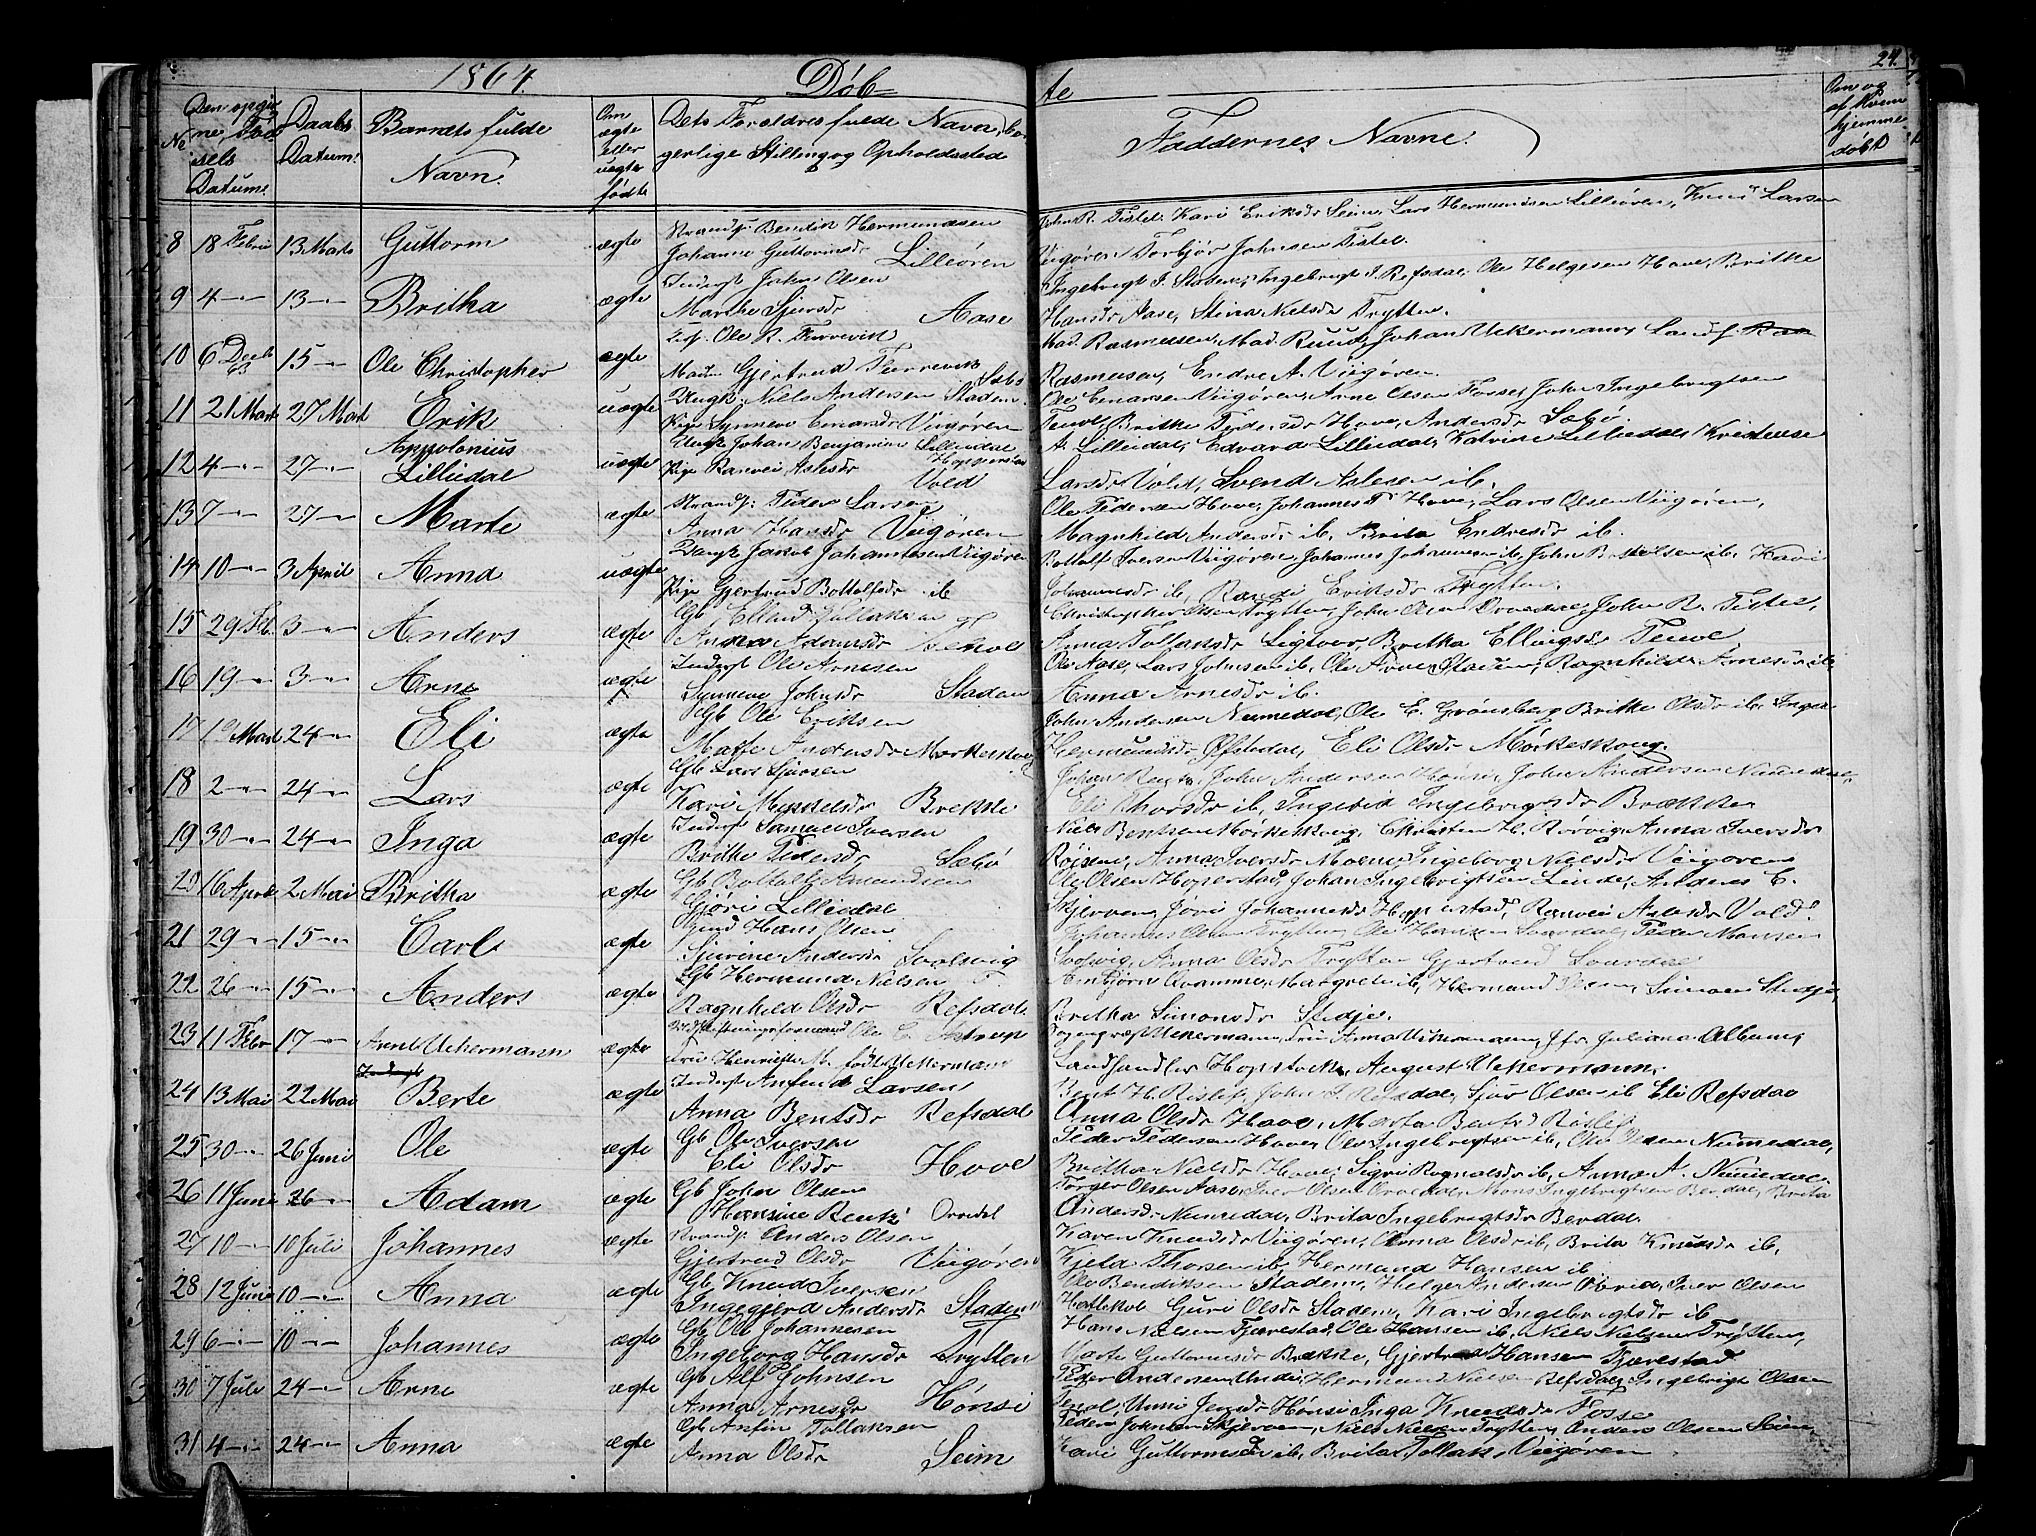 1864.
Døb
te
24.
No
Den opgivne Fødselsdatum.
Daabs Datum.
Barnets fulde Navn.
Om ægte eller uægte født
Dets Forældres fulde Navn, borgerlige Stilling og Opholdssted
Faddernes Navne.
Om og af Hvem hjemmedøbt
8 18 Febru 13 Marts Guttorm ægte Strandf. Bendik Hermundsen
Johanne Guttormsdr Lilleøren
John R. Tistel, Kari Eriksdr Seim, Lars Hermundsen Lilleøren, Knud Larsen
Viigøren Torbjør Johnsen Tistel.
9 4 13 Britha ægte Inderst John Olsen
Marthe Sjursdr Aase
Ingebrigt I. Staden, Ingebrigt I. Refsdal, Ole Helgesen Hove, Britha
Hansdr Aase, Stina Nielsdr Trytten.
10 6 Decb 63 15 Ole Christopher ægte Ole R.
Madm Gjertrud
Mad. Rasmusen, Mad. Ruud, Johan Uckermann, Landh.
Rasmusen, Endre A. Viigøren.
11 21 Mart 27 Mart Erik uægte Ungk. Niels Andersen Staden
Pige Synneve Einarsdr Viigøren
Ole Einarsen Viigøren, Arne Olsen Fosse, John Ingebrigtsen
Tenol, Brithe Pedersdr Hove, Andersdr Sæbø.
12 4 27 Appolonius Lilliedal uægte Ungk Johan Benjamin Lilliedal Hopperstad
Pige Ranvei Aslesdr Vold
A. Lilliedal, Edvard Lilliedal, Katrine Lilliedal, Kristense
Larsdr Vold, Svend Aslesen ib.
13 7 27 Marte ægte Strandf. Peder Larsen
Anna Hansdr Viigøren
Ole Pedersen Hove, Johannes P. Hove, Lars Olsen Viigøren,
Magnhild Andersdr ib, Brita Endresdr ib.
14 10 3 April Anna uægte Ungk Jakob Johannesen Viigøren
Pige Gjertrud Bottolfsdr ib
Bottolf Iversen Viigøren, Johannes Johannesen ib, John Botolfsen ib, Kari
Johannesdr ib, Randi Eriksdr Trytten.
15 29 Feb. 3 Anders ægte Gb Elland Tollaksen
Anna Adamsdr Tenol
Christopher Olsen Trytten, John Olsen Orvedal, John R. Tistel,
Anna Tollaksdr Ligtvor, Britha Ellingsdr Tenol
16 19 3 Arne ægte Inderst Ole Arnesen
Synneve Johnsdr Staden
Ole Aase, Lars Johnsen ib, Ole Arnesen Staden, Ragnhilda Arnesdr ib,
Anna Arnesdr ib.
17 19 Mart 24 Eli ægte Gb Ole Eriksen
Marte Andersdr Mørkeskoug
John Andersen Numedal, Ole E. Grønsberg Brithe Olsdr ib. Inger
Hermundsdr Øfstedal, Eli Olsdr Mørkeskoug.
18 2 24 Lars ægte Gb Lars Sjursen
Kari Mikkelsdr Brekke
John Andersen Hønsi, John Andersen Numedal,
Eli Thorsdr ib, Ingerid Ingebrigtsdr Brække.
19 30 24 Inga ægte Inderst Samuel Iversen
Brithe Pedersdr Sæbø
Niels Bentsen Mørkeskoug, Christen H. Rørvig, Anna Iversdr
Anna Iversdr Moene, Ingeborg Nielsdr Viigøren
20 16 April 2 Mai Britha ægte Gb Bottolf Amundsen
Gjøri Lilliedal
Ole Olsen Hoperstad, Johan Ingebrigtsen Linde, Anders E.
Skjerven, Jøri Johannesdr Hoperstad, Ranvei Aslesdr Vold.
21 29 15 Carl ægte Hans Olsen
Sjurine Andersdr Solsvig
Johannes Olsen Trytten, Ole Hansen Svardal, Peder Monsen
Solsvig, Anna Olsdr Trytten Gjertrud Svardal
22 26 15 Anders ægte Gb Hermund Nielsen
Ragnhild Olsdr Refsdal
Arnbjørn Qvamme, Margrete ib, Hermund Olsen, Simon Stedje,
Britha Simonsdr Stedje.
23 11 Febr 17 Arnt Uchermann ægte Ole C.
Fru Henriette M. født Uckermann
Sogneprest Uckermann, Fru Anna Uckermann, Jfr. Juliana Album,
Landhandler Hopstock, August Uckermann.
24 13 Mai 22 Mai Berte ægte Inderst Anfind Larsen
Anna Bentsdr Refsdal
Bent H. Risløf, John I. Refsdal, Sjur Olsen ib Eli Refsdal
Anna Olsdr Hove, Marta Bentsd Risløf
25 30 26 Juni Ole ægte Gb Ole Iversen
Eli Olsdr Hove
Peder Pedersen Hove, Ole Ingebrigtsen ib, Ole Olsen Numedal,
Britha Nielsdr Hove, Sigri Rognaldsdr ib, Anna A. Numedal.
26 11 Juni 26 Adam ægte Gb John Olsen
Hansine Bentsd Orvedal
Torger Olsen Aase, Iver Olsen Orvedal, Mons Ingebrigtsen Berdal, Brita
Andersdr Numedal, Brita Ingebrigtsdr Berdal.
27 10 10 Juli Johannes ægte Strandf. Anders Olsen
Gjertrud Olsdr Viigøren
Karen Knudsdr Viigøren, Anna Olsdr ib, Brita Knudsdr ib,
Kjeld Thorsen ib, Hermund Hansen ib
28 12 Juni 10 Anna ægte Gb Knud Iversen
Ingegjerd Andersdr Staden
Ole Bendiksen Staden, Helge Andersen Hove, Iver Olsen
Hatlekol Guri Olsdr Staden, Kari Ingebrigtsdr ib
29 6 10 Johannes ægte Gb Ole Johannesen
Ingeborg Hansdr Trytten
Hans Nielsen Fjærestad, Ole Hansen ib, Niels Nielsen Trytten,
Marte Guttormsdr Brække, Gjertrud Hansen Fjærestad
30 7 Juli 24 Arne ægte Gb Alf Johnsen
Anna Arnesdr Hønsi
Peder Andersen Unde, Hermund Nielsen Refsdal, Ingebrigt Olsen
Tenol, Unni Jensdr Hønsi Inga Knudsdr Fosse
31 4 24 Anna ægte Gb Anfin Tollaksen
Anna Olsdr Seim
Peder Johnsen Skjerven, Niels Nielsen Trytten, Anders Olsen Seim,
Kari Guttormsd ib, Brita Tollaks Viigøren